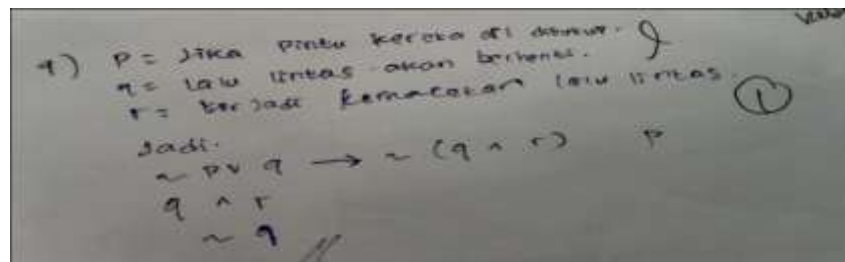 9) P = Jika pintu kereta di
q = Lalu lintas akan berhenti.
r = terjadi kemacetan lalu lintas.
1
Jadi.
~ p v q → ~ (q ∧ r) P
q ∧ r
~ q